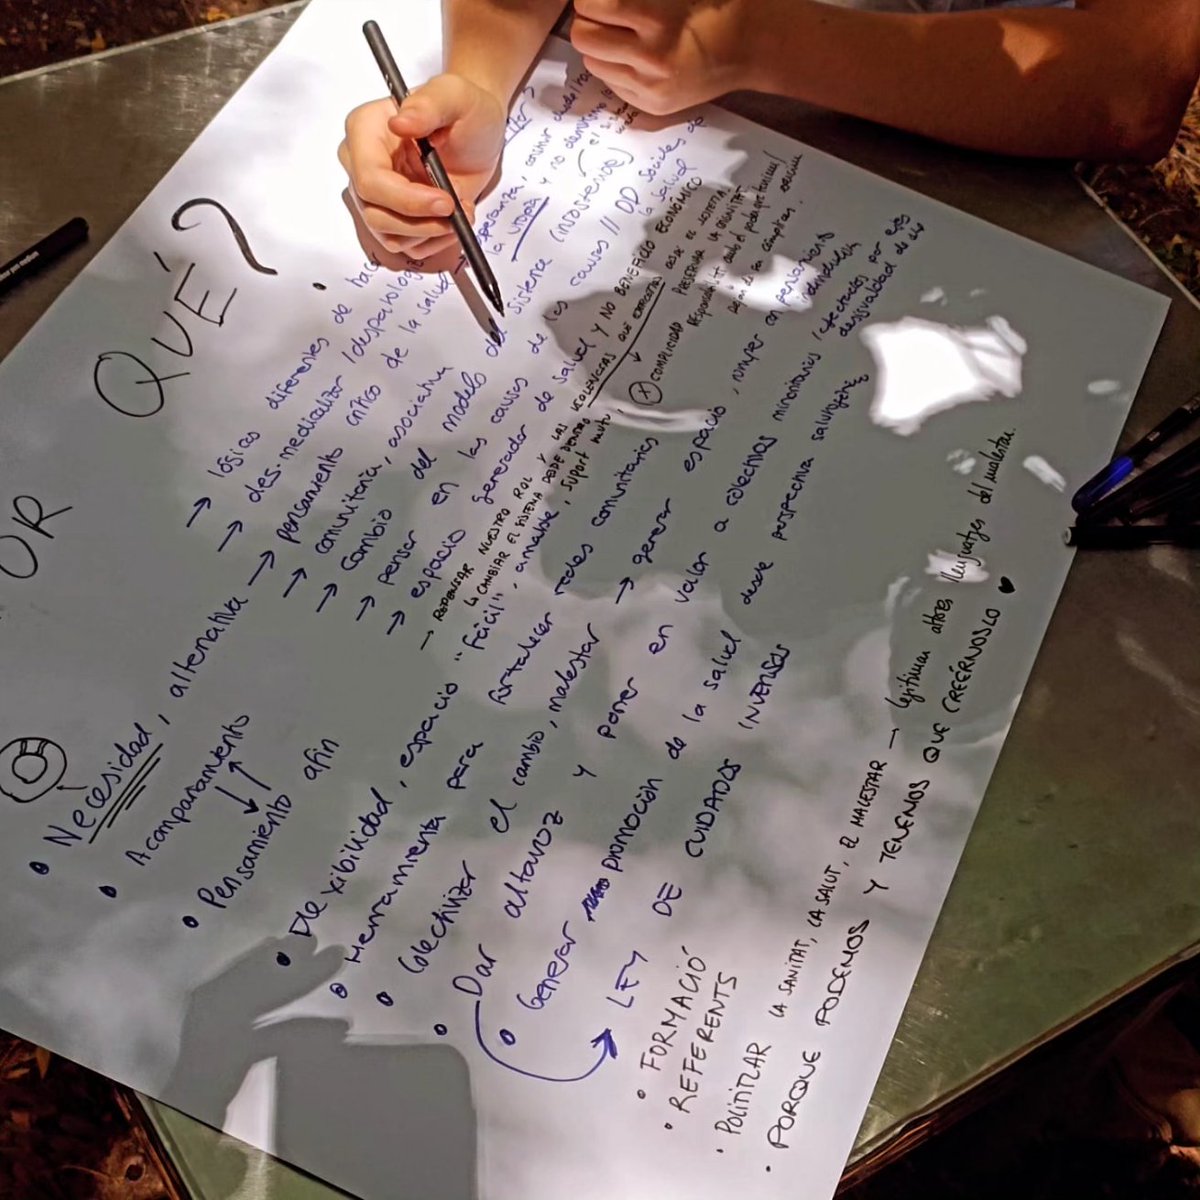 OR QUÉ?
• Necesidad, alternativa → lógicas diferentes de hacer
→ des-medicalizar / despatologizar
→ pensamiento crítico de la salud
→ comunitaria, asociativa
→ Cambio del modelo del sistema (insostenible)
→ pensar en las causas de las causas // DD sociales de la salud
→ espacio generador de salud y NO BENEFICIO ECONÓMICO
→ REPENSAR NUESTRO ROL Y LAS VIOLENCIAS QUE EJERCEMOS DESDE EL SISTEMA
↳ CAMBIAR EL SISTEMA DESDE DENTRO
+ COMPLICIDAD
• Acompañamiento
• Pensamiento afín
• Flexibilidad, espacio "fácil", amable, suport mutu
• Herramienta para fortalecer redes comunitarias
• Colectivizar el cambio, malestar → generar espacio, romper con pensamiento individualista
• Dar altavoz y poner en valor a colectivos minoritarios / afectados por ejes desigualdad
• Generar promoción de la salud desde perspectiva salutogénica
LEY DE CUIDADOS INVERSOS
• FORMACIÓ
• REFERENTS
• POLITITZAR LA SANITAT, LA SALUT, EL MALESTAR → legitimar altres llenguatges del malestar.
• PORQUE PODEMOS Y TENEMOS QUE CREÉRNOSLO ♥